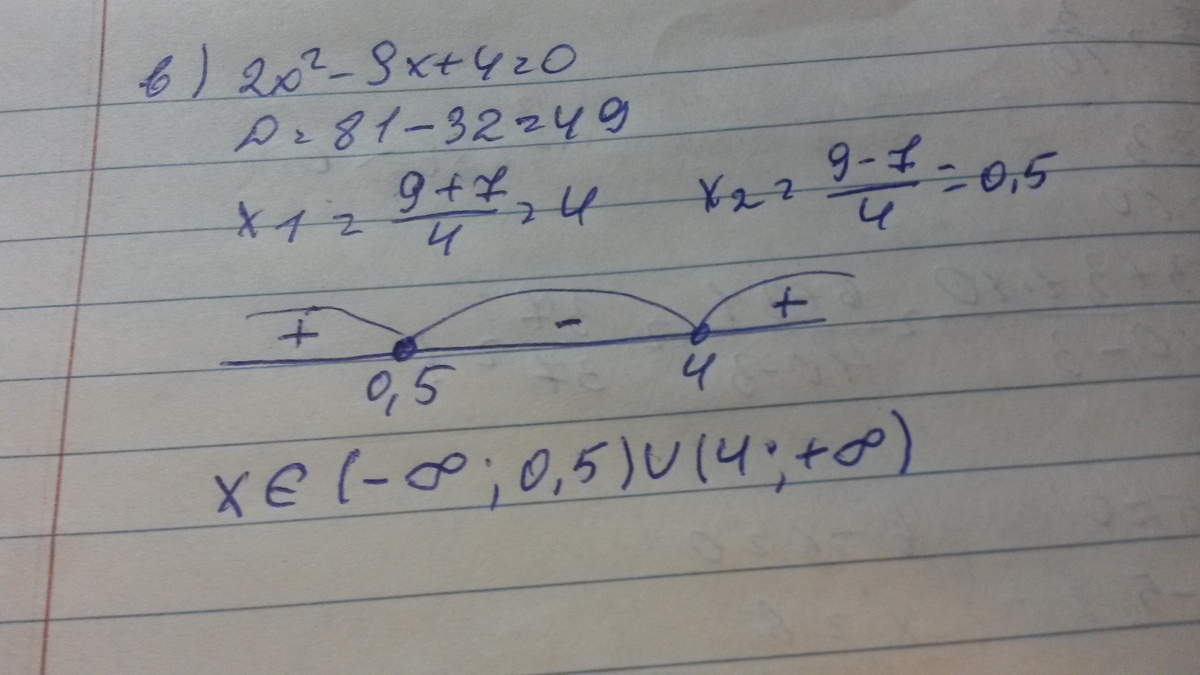 в) 2x² - 9x + 4 = 0
D = 81 - 32 = 49
x1 = (9+7)/4 = 4 x2 = (9-7)/4 = 0,5
+ - +
0,5 4
x ∈ (-∞; 0,5) ∪ (4; +∞)